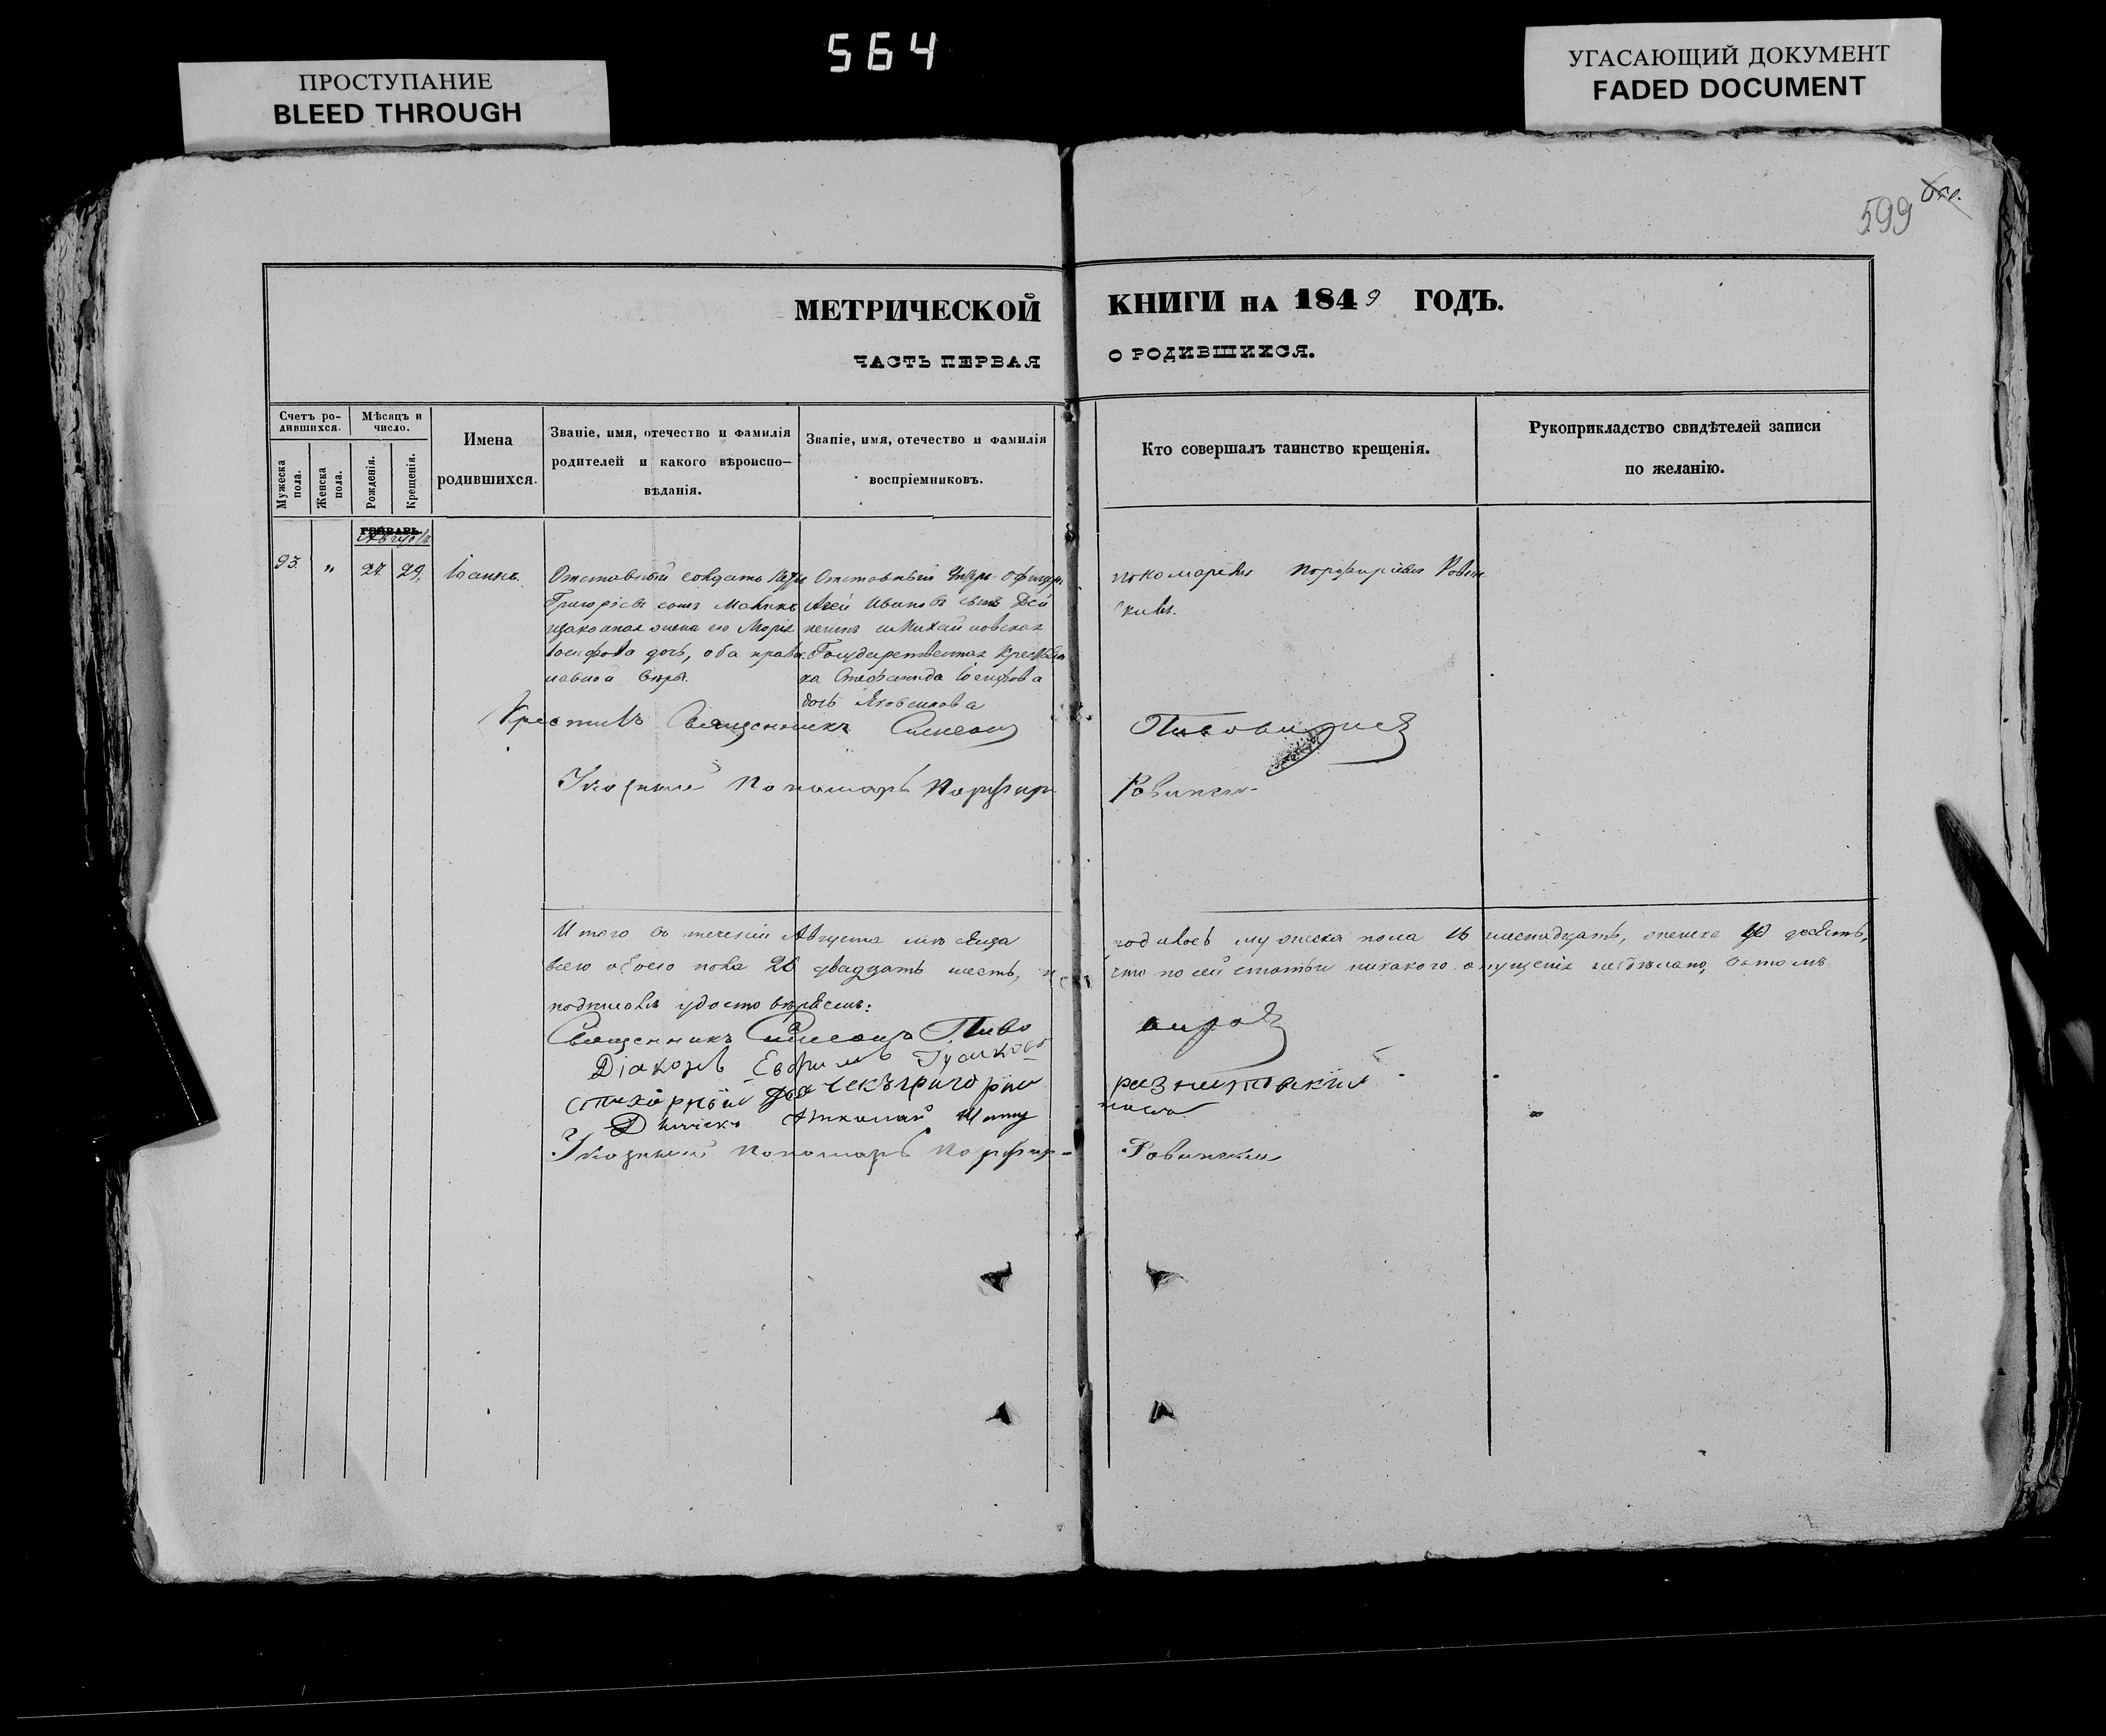 564
ПРОСТУПАНИЕ
BLEED THROUGH
УГАСАЮЩИЙ ДОКУМЕНТ
FADED DOCUMENT
599
МЕТРИЧЕСКОЙ КНИГИ НА 1849 ГОДЪ.
ЧАСТЬ ПЕРВАЯ О РОДИВШИХСЯ.
Счетъ ро-
дившихся.
Мужеска
пола.
Женска
пола.
Мѣсяцъ и
число.
Рожденія.
Крещенія.
Имена
родившихся.
Званіе, имя, отечество и фамилія
родителей и какого вѣроиспо-
вѣданія.
Званіе, имя, отечество и фамилія
воспріемниковъ.
Кто совершалъ таинство крещенія.
Рукоприкладство свидѣтелей записи
по желанію.
Августъ
93. " 27. 29. Іоаннъ.
Отставный солдатъ
Григоріевъ сынъ
законная жена его Марія
Іосифова дочь, оба право
славной вѣры.
Отставный Унтеръ-офицеръ
Ивановъ сынъ
Михайловская
Государственная
ка Стефанида Іосифова
дочь Яковенкова
пономаремъ Порфиріемъ Ровин
скимъ.
Крестилъ Священникъ Симеонъ Пивоваровъ
Указный Пономарь Порфирій Ровинскій
Итого въ теченіи Августа мѣсяца родилось мужеска пола 16 шеснадцать, женска 10 десять,
всего обоего пола 26 двадцать шесть, и что по сей статьи никакого опущенія несдѣлано, въ томъ
подписомъ удостовѣряемъ:
Священникъ Симеонъ Пивоваровъ
Діаконъ Евфимъ
стихарный Дьячекъ Григорій
Дьячекъ Николай
Указный Пономарь Порфирій Ровинскій